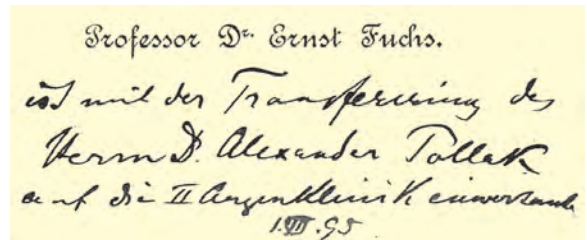 Professor Dr. Ernst Fuchs.
ist mit der Transferirung des
Herrn D. Alexander Pollak
auf die II Augenklinik einverstande
1.III.95